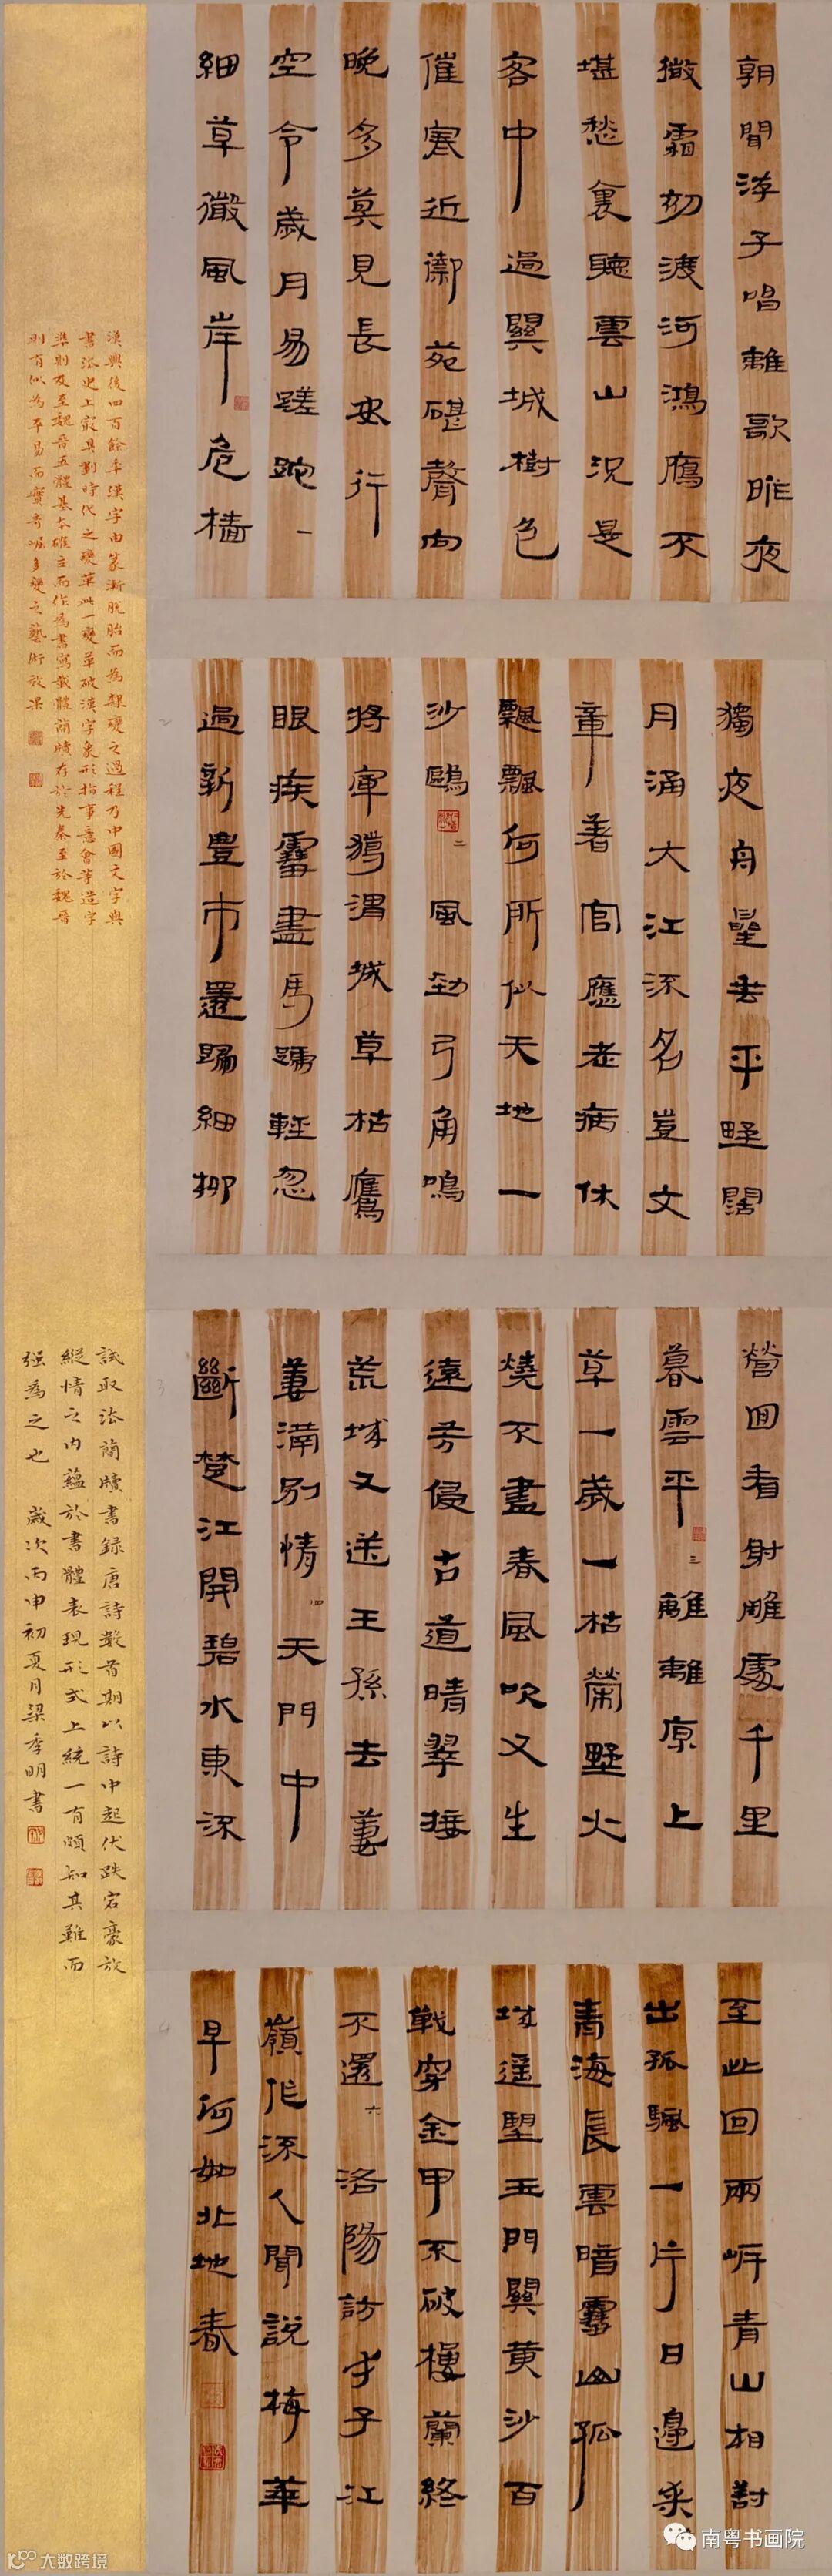 朝聞游子唱離歌昨夜
微霜初渡河鴻鴈不
堪愁裏聽雲山況是
客中過關城樹色
催寒近御苑砧聲向
晚多莫見長安行
空令歲月易蹉跎 一
細草微風岸危檣
獨夜舟星垂平野闊
月涌大江流名豈文
章著官應老病休
飄飄何所似天地一
沙鷗 二 風勁弓角鳴
將軍獵渭城草枯鷹
眼疾雪盡馬蹄輕忽
過新豐市還歸細柳
營回看射雕處千里
暮雲平 三 離離原上
草一歲一枯榮野火
燒不盡春風吹又生
遠芳侵古道晴翠接
荒城又送王孫去萋
萋滿別情 四 天門中
斷楚江開碧水東流
至此回兩岸青山相對
出孤颿一片日邊來
青海長雲暗雪山孤
城遥望玉門關黄沙百
戰穿金甲不破樓蘭終
不還 六 洛陽訪才子江
嶺作流人聞說梅華
早何如北地春
漢興後四百餘年漢字由篆漸脱胎而為隸變之過程乃中國文字與
書法史上最具劃時代之變革此一變革破漢字象形指事意會等造字
準則及至魏晉五體基本確立而作為書寫載體簡牘存於先秦至於魏晉
則有似為平易而實奇崛多變之藝術效果
試取法簡牘書錄唐詩數首期以詩中起伏跌宕豪放
縱情之内蘊於書體表現形式上統一有頗知其難而
强為之也 歲次丙申初夏月梁季明書
南粤书画院
大数跨境